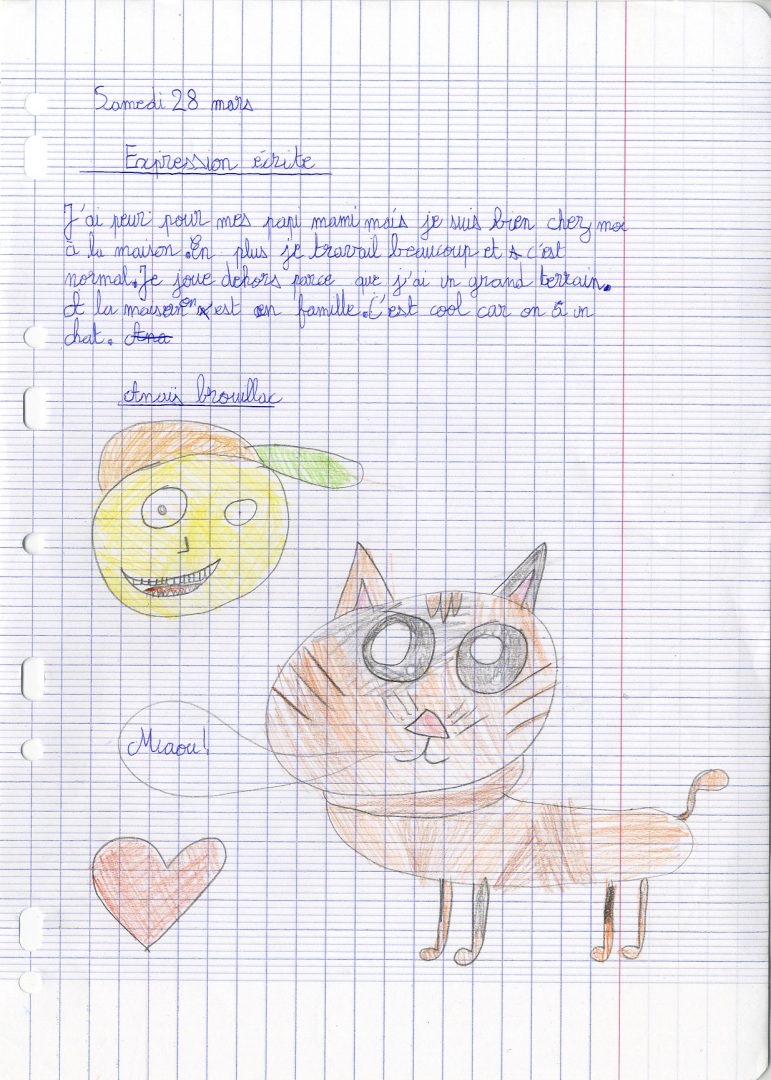 Samedi 28 mars
Expression écrite
J'ai peur pour mes papi mami mais je suis bien chez moi
à la maison. En plus je travail beaucoup et c'est
normal. Je joue dehors parce que j'ai un grand terrain.
A la maison on est en famille. C'est cool car on à un
chat. Ana
Anais brouillac
Miaou!